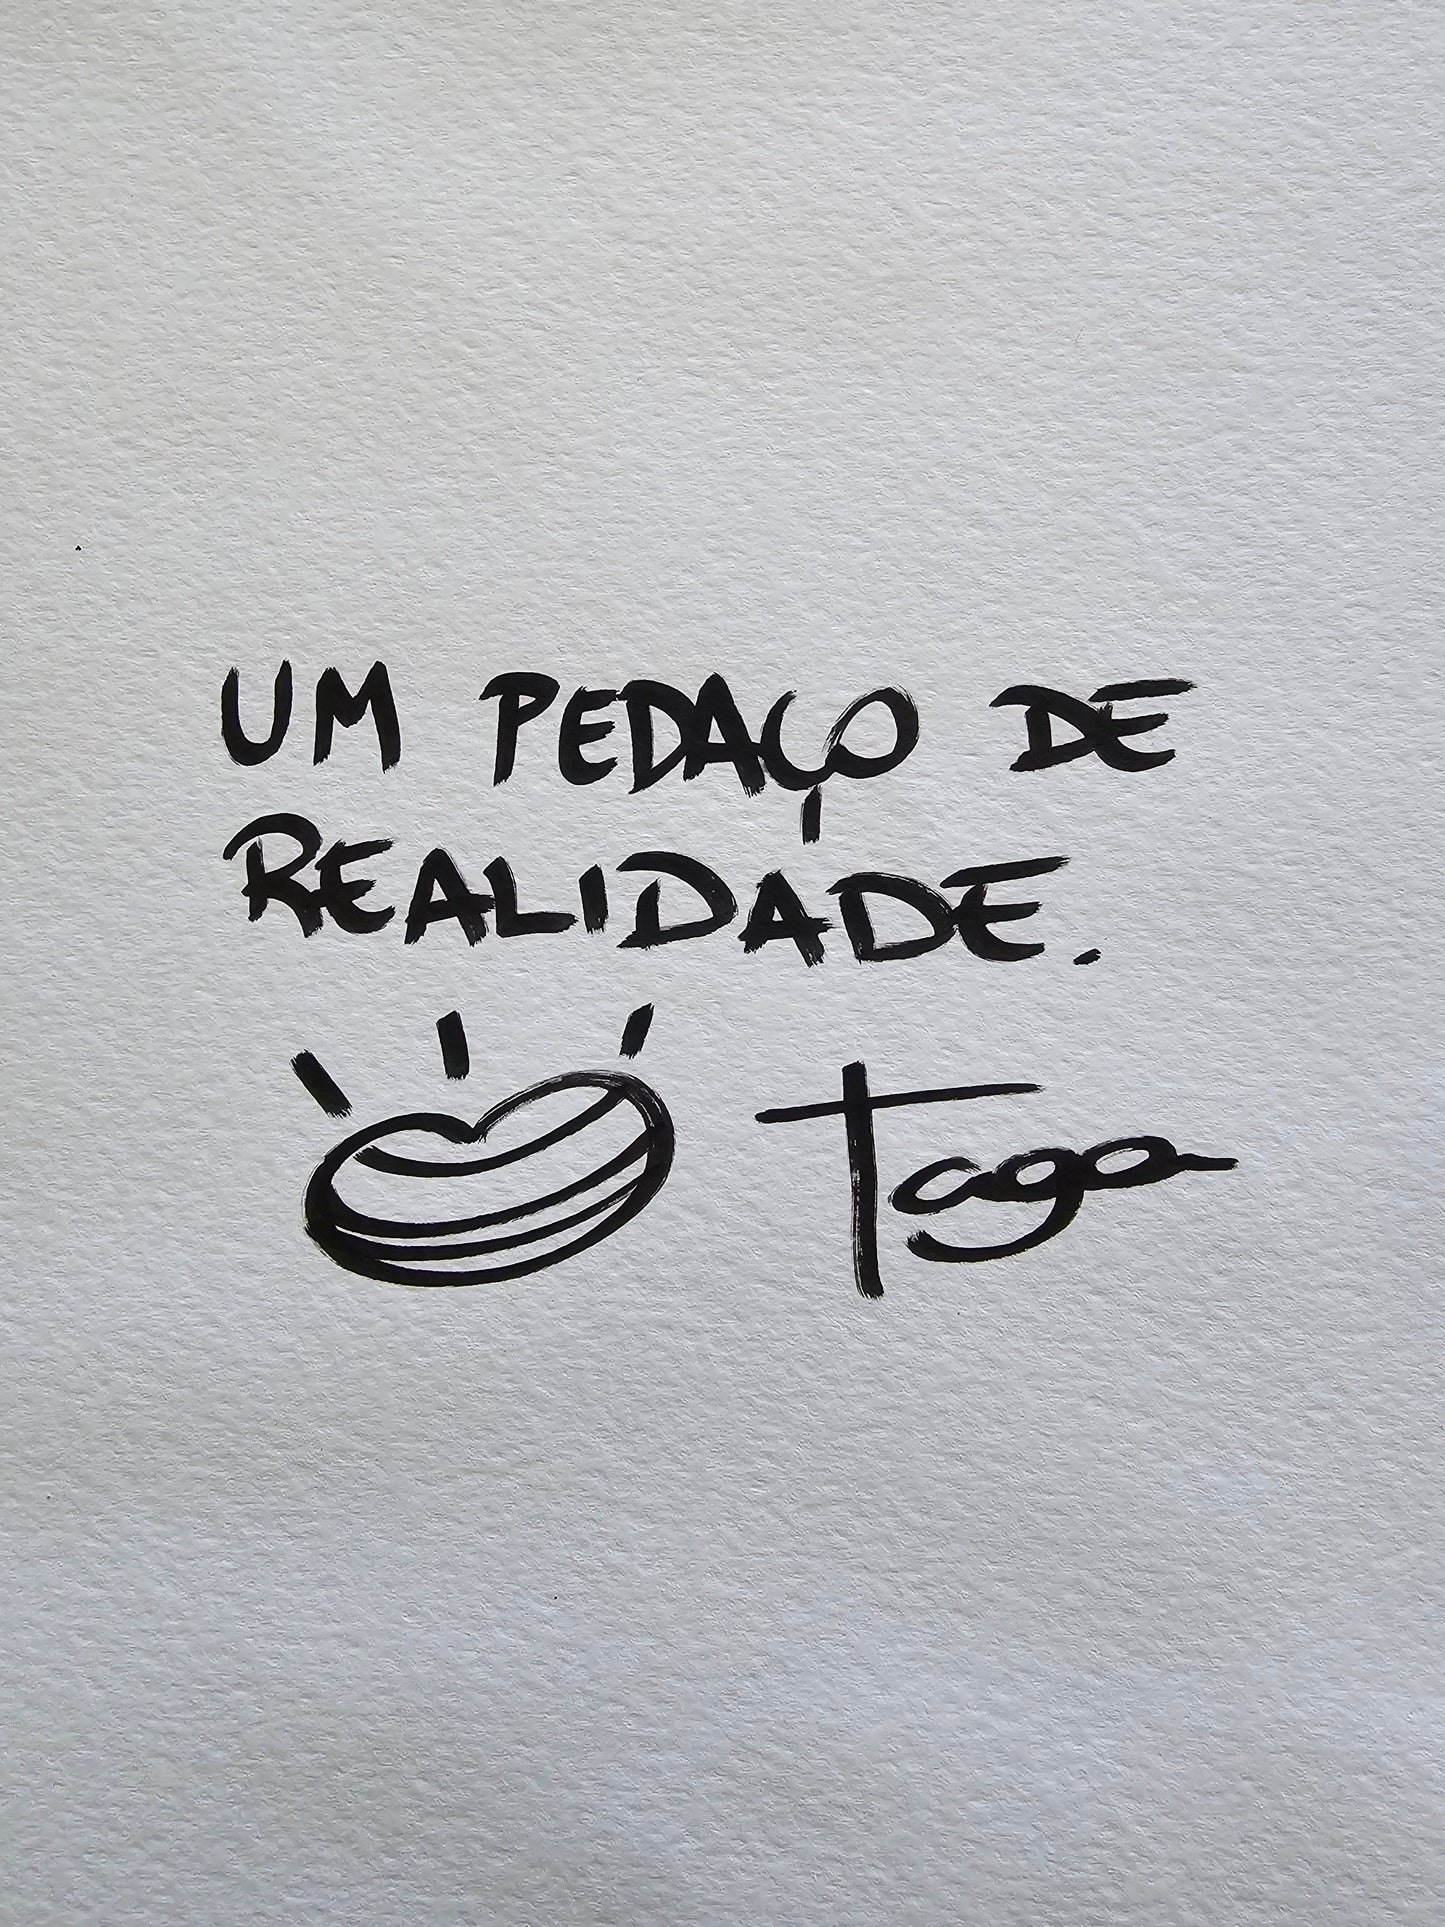 UM PEDAÇO DE
REALIDADE.
Taga